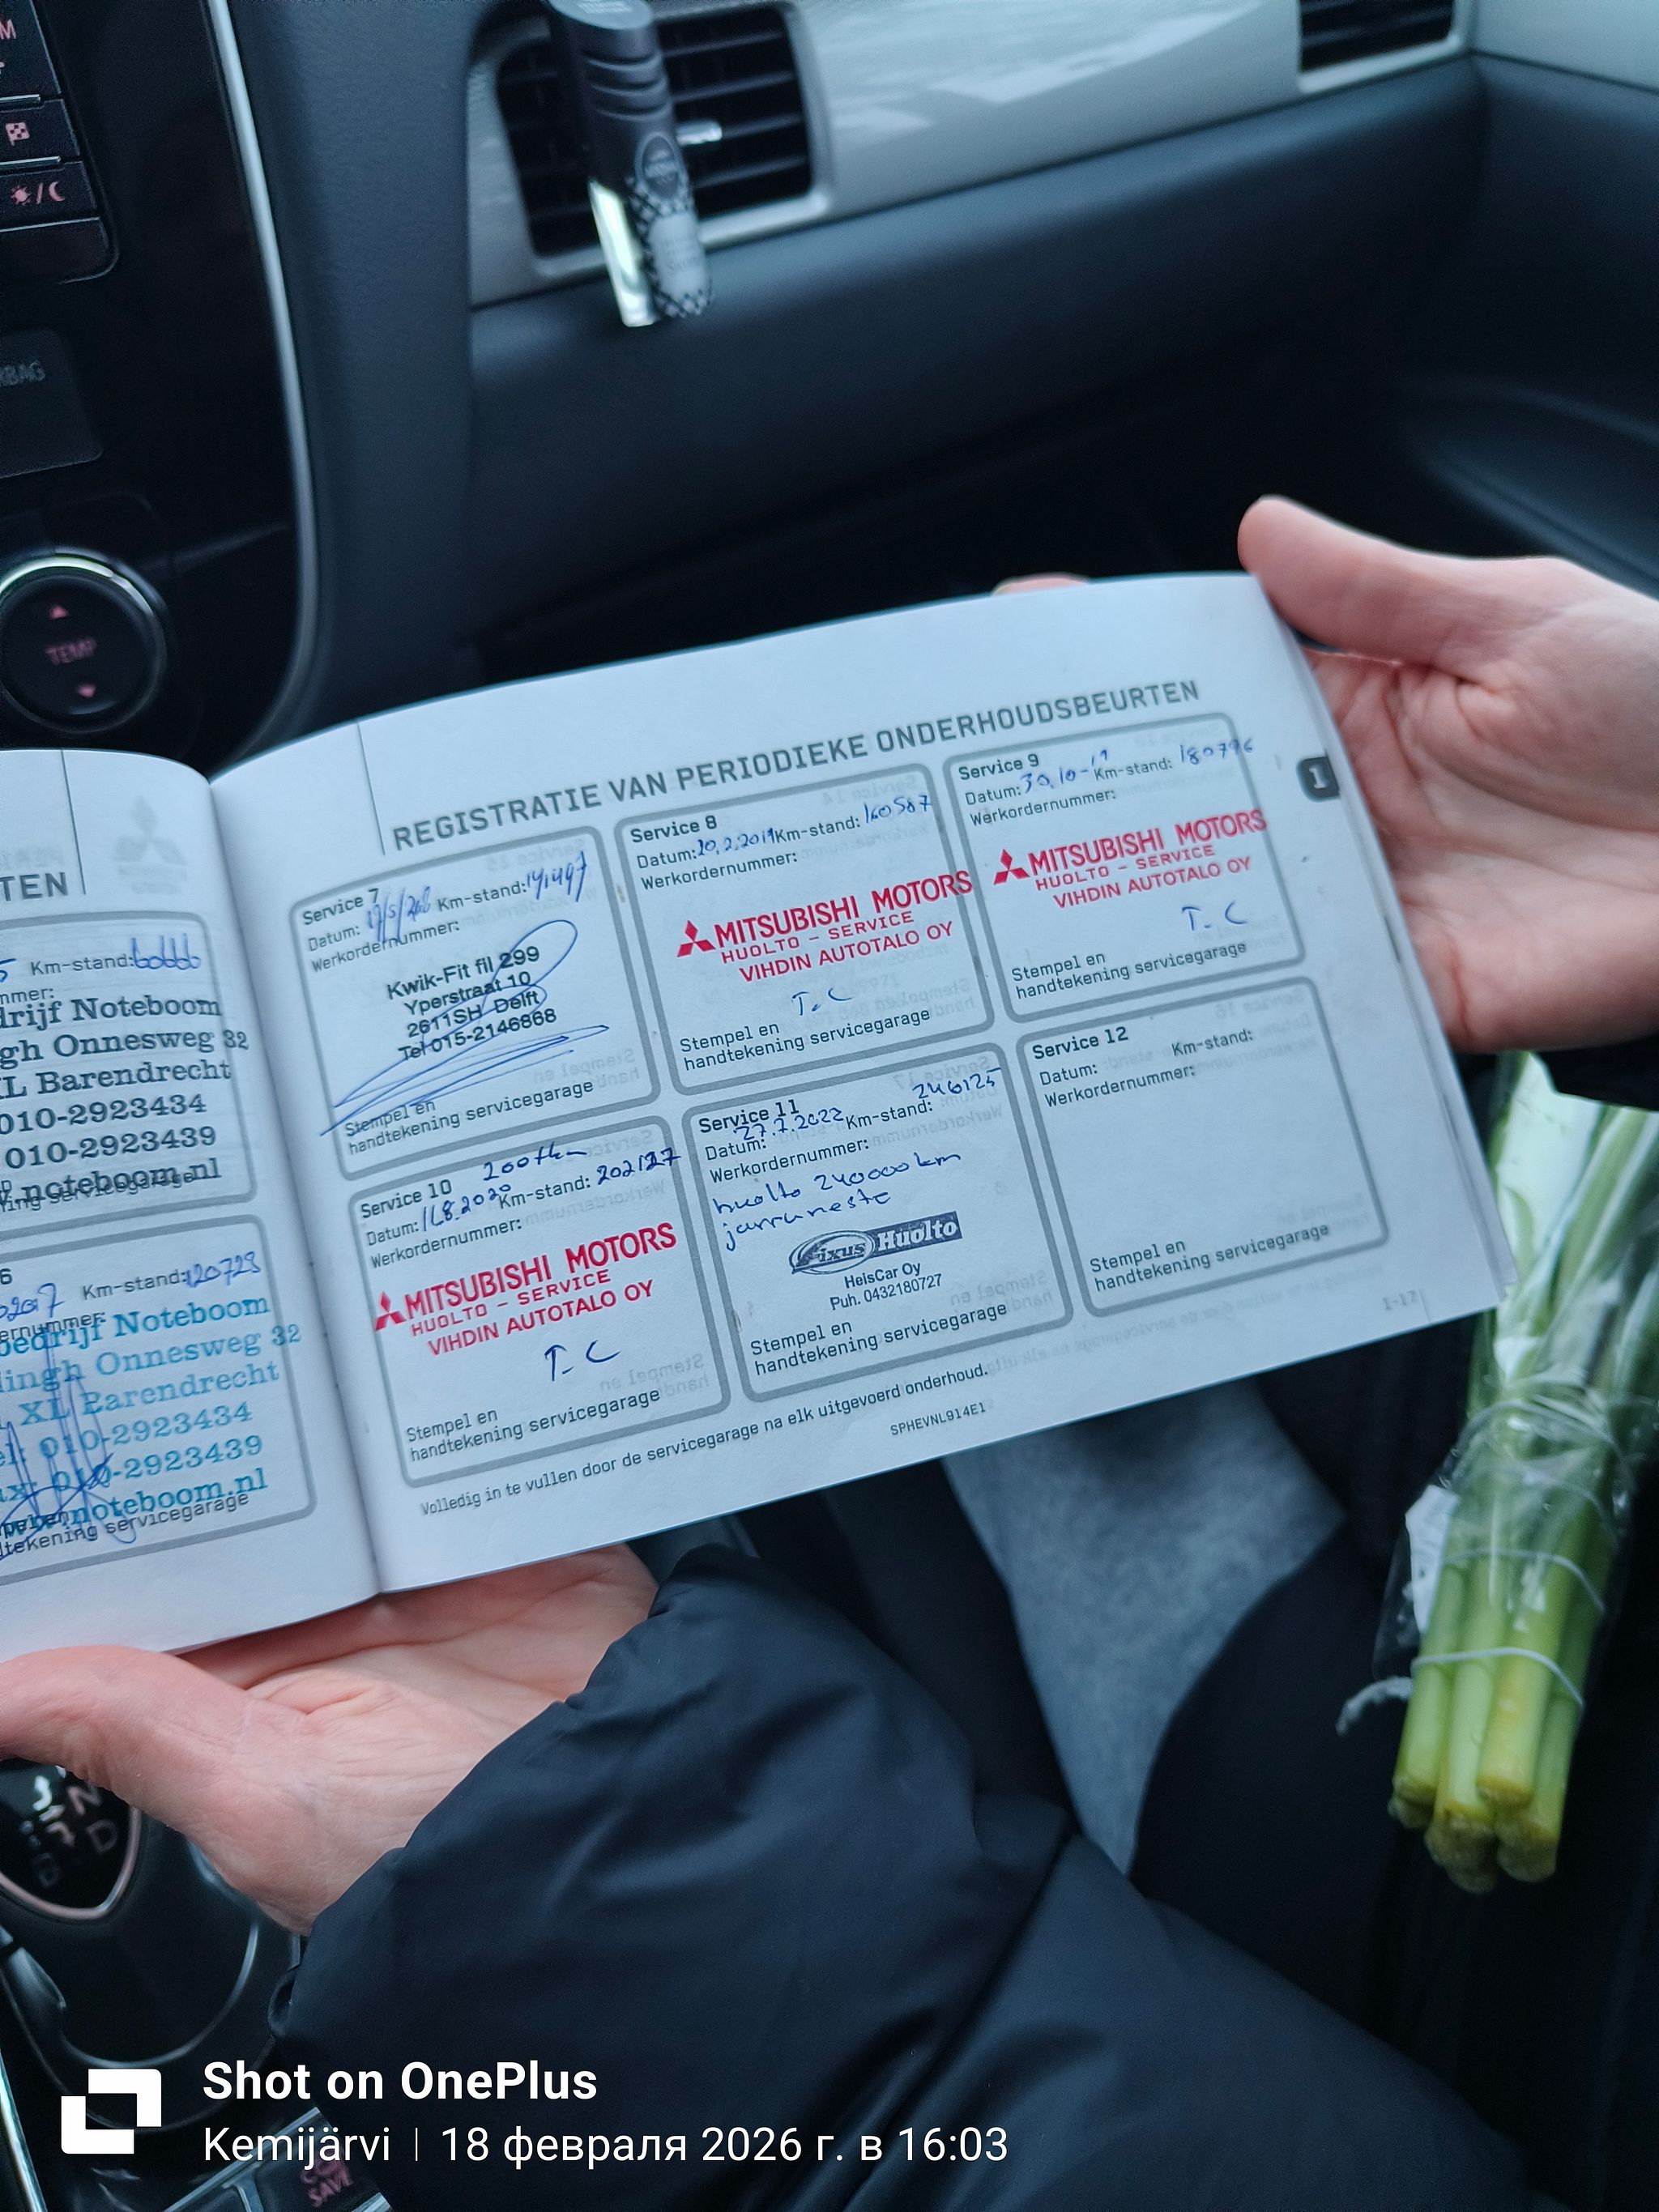 TEMP
TEN
Km-stand:
drijf Noteboom
gh Onnesweg 32
XL Barendrecht
010-2923434
010-2923439
w.noteboom.nl
6
Km-stand: 120723
bedrijf Noteboom
lingh Onnesweg 32
XL Barendrecht
el: 010-2923434
ax: 010-2923439
www.noteboom.nl
handtekening servicegarage
REGISTRATIE VAN PERIODIEKE ONDERHOUDSBEURTEN
1
Service 7
Datum: Km-stand: 141497
Werkordernummer:
Kwik-Fit fil 299
Yperstraat 10
2611SH Delft
Tel 015-2146868
Stempel en
handtekening servicegarage
Service 8
Datum: 20.2.2019 Km-stand: 160587
Werkordernummer:
MITSUBISHI MOTORS
HUOLTO - SERVICE
VIHDIN AUTOTALO OY
T. C
Stempel en
handtekening servicegarage
Service 9
Datum: 30.10-19 Km-stand: 180796
Werkordernummer:
MITSUBISHI MOTORS
HUOLTO - SERVICE
VIHDIN AUTOTALO OY
T. C
Stempel en
handtekening servicegarage
Service 10 200tkm
Datum: 18.2020 Km-stand: 202127
Werkordernummer:
MITSUBISHI MOTORS
HUOLTO - SERVICE
VIHDIN AUTOTALO OY
T. C
Stempel en
handtekening servicegarage
Service 11 246125
Datum: 27.7.2022 Km-stand:
Werkordernummer:
huolto 240000km
jarruneste
Fixus Huolto
HeisCar Oy
Puh. 0432180727
Stempel en
handtekening servicegarage
Service 12
Datum: Km-stand:
Werkordernummer:
Stempel en
handtekening servicegarage
Volledig in te vullen door de servicegarage na elk uitgevoerd onderhoud.
SPHEVNL914E1
1-17
N
D
Shot on OnePlus
Kemijärvi | 18 февраля 2026 г. в 16:03
SAVE